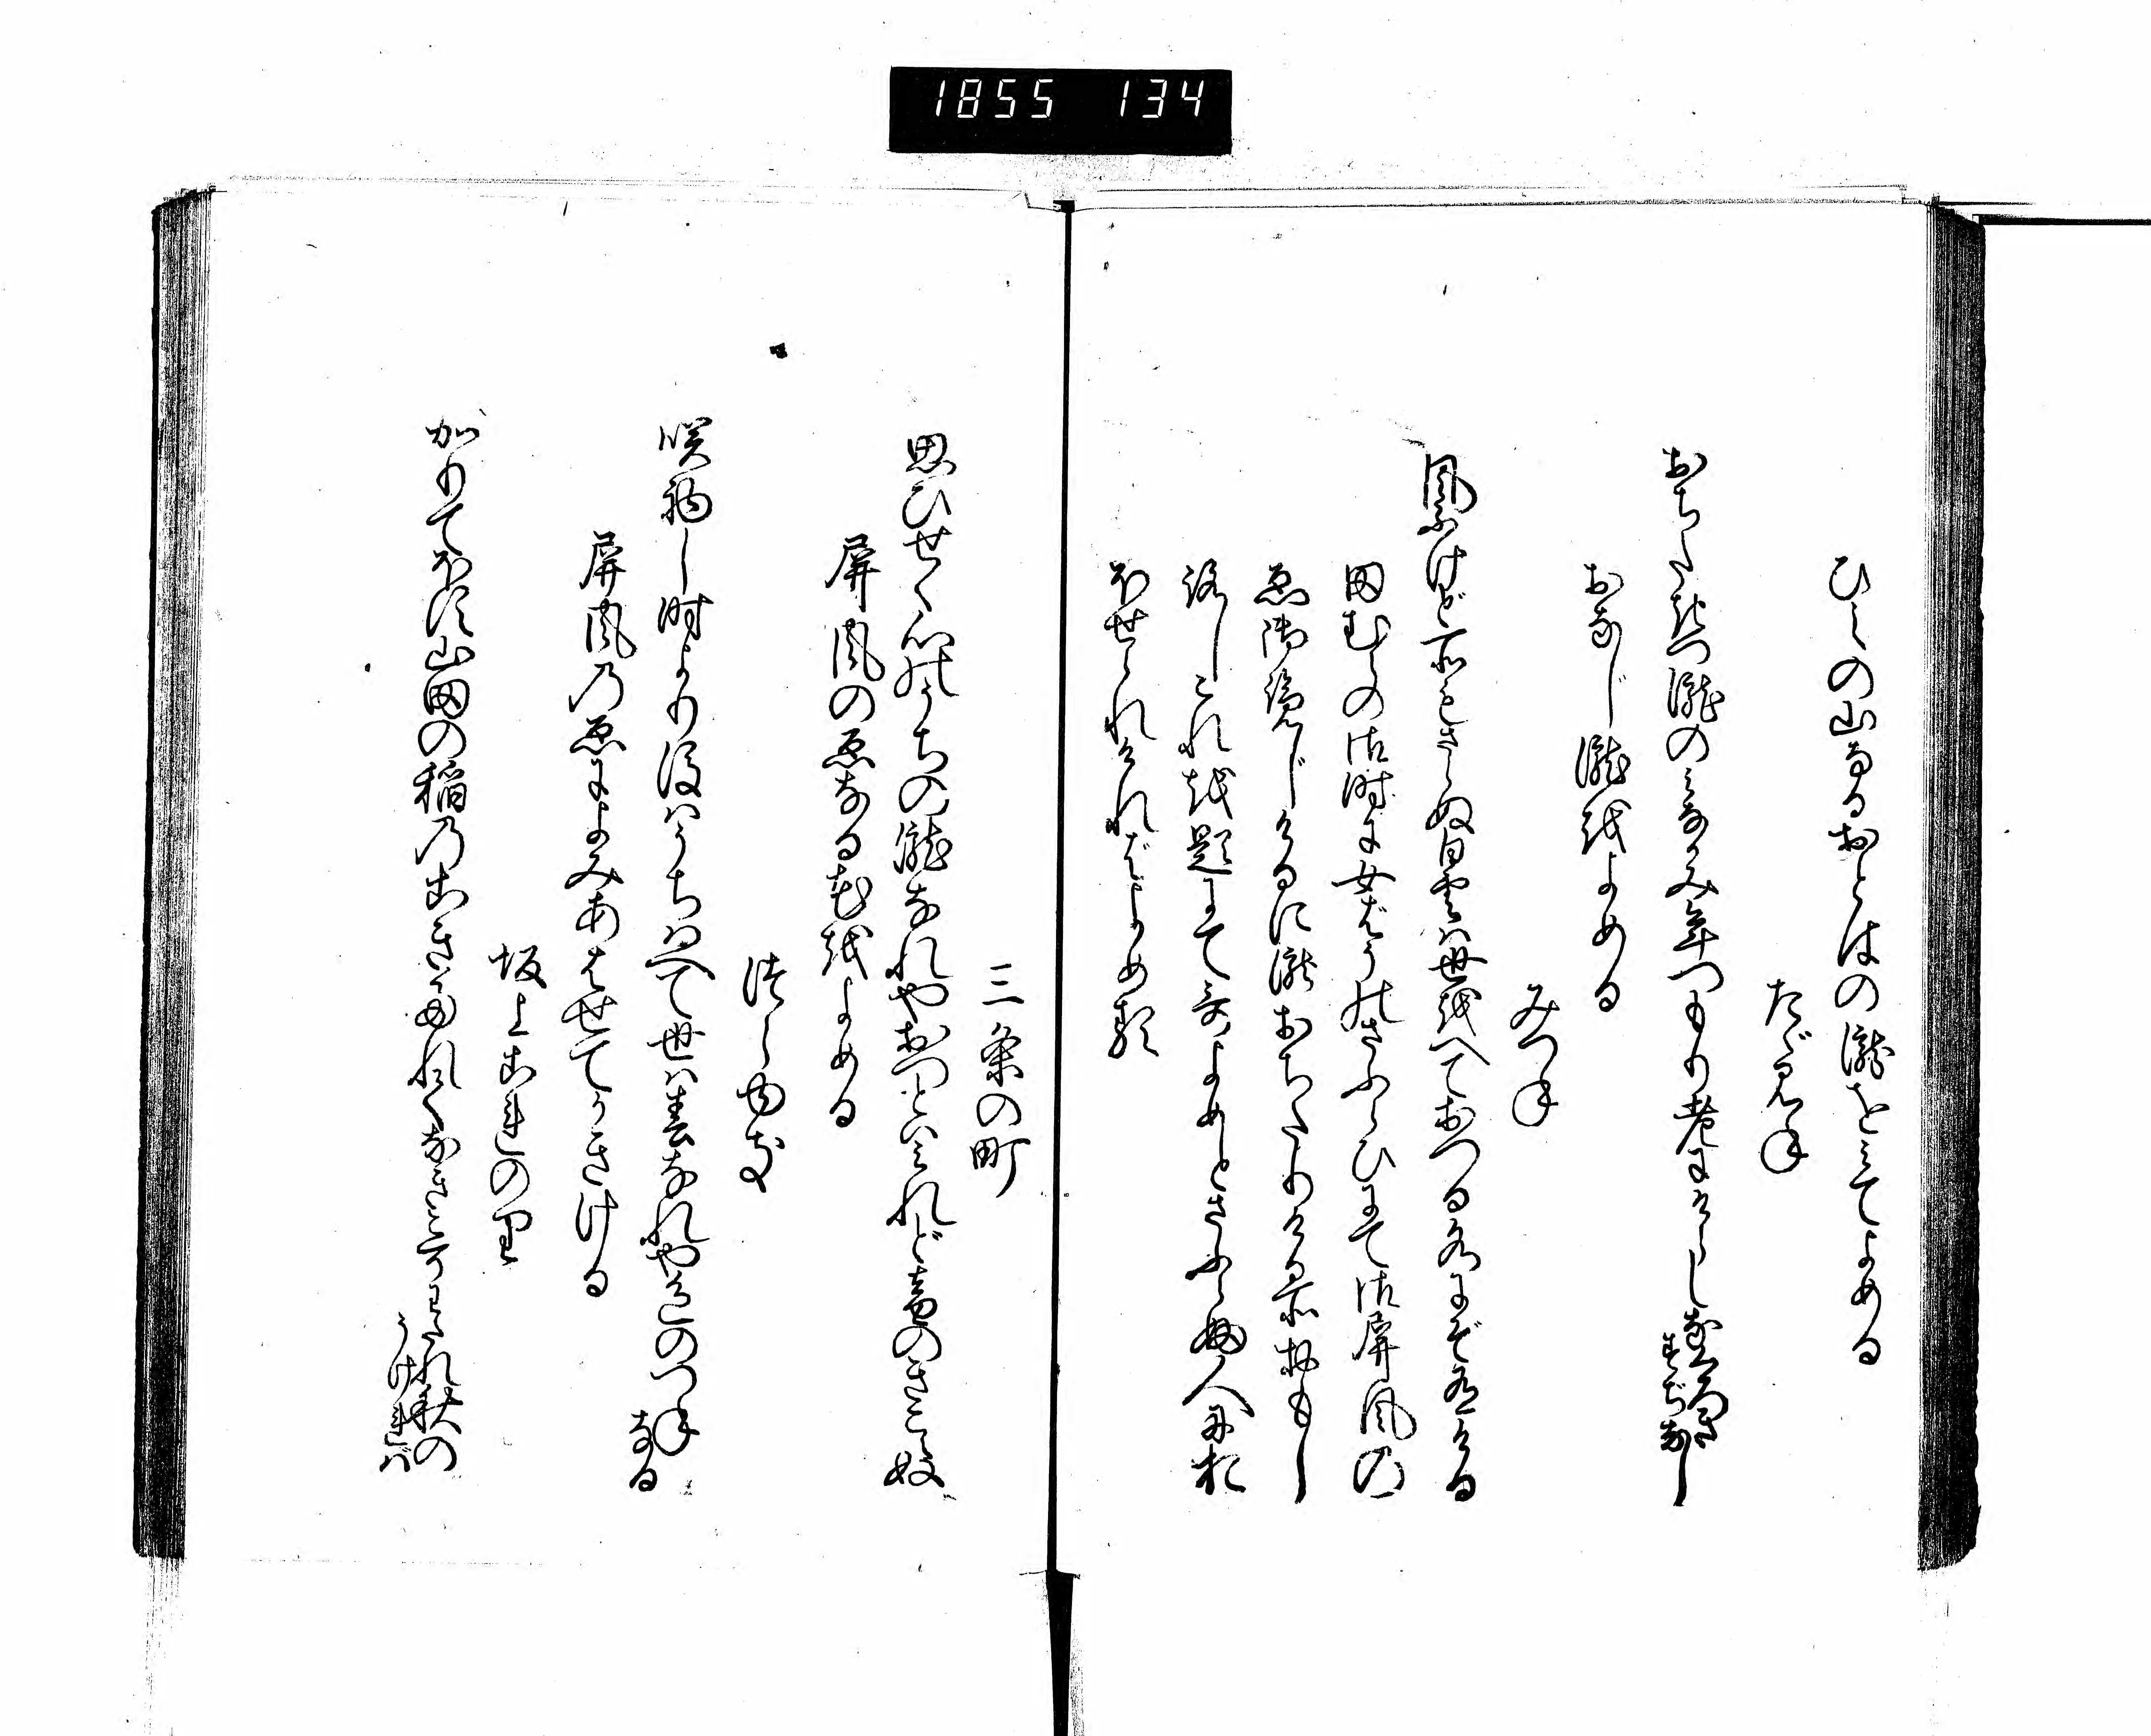 1855 134
ひえの山なるおとはの瀧をみてよめる
たゞみね
おちたぎつ瀧のみなかみ年つもり老にけらしなくろき
すぢなし
おなじ瀧をよめる
みつね
風ふけど所もさらぬ白雲は世をへておつる水にぞ有ける
田むらの御時に女ばうのさふらひにて御屏風の
ゑ御覧じけるに瀧おちたりける所おもし
ろしこれを題にて哥よめとさふらふ人にお
ほせられければよめる
三条の町
思ひせく心のうちの瀧なれやおつとはみれど音のきこえぬ
屏風のゑなる花をよめる
つらゆき
咲初し時より後はうちはへて世は春なれや色のつね
なる
屏風のゑによみあはせてかきける
坂上これのり
かりてほす山田の稲のこきたれてなきこそわたれ秋の
うければ